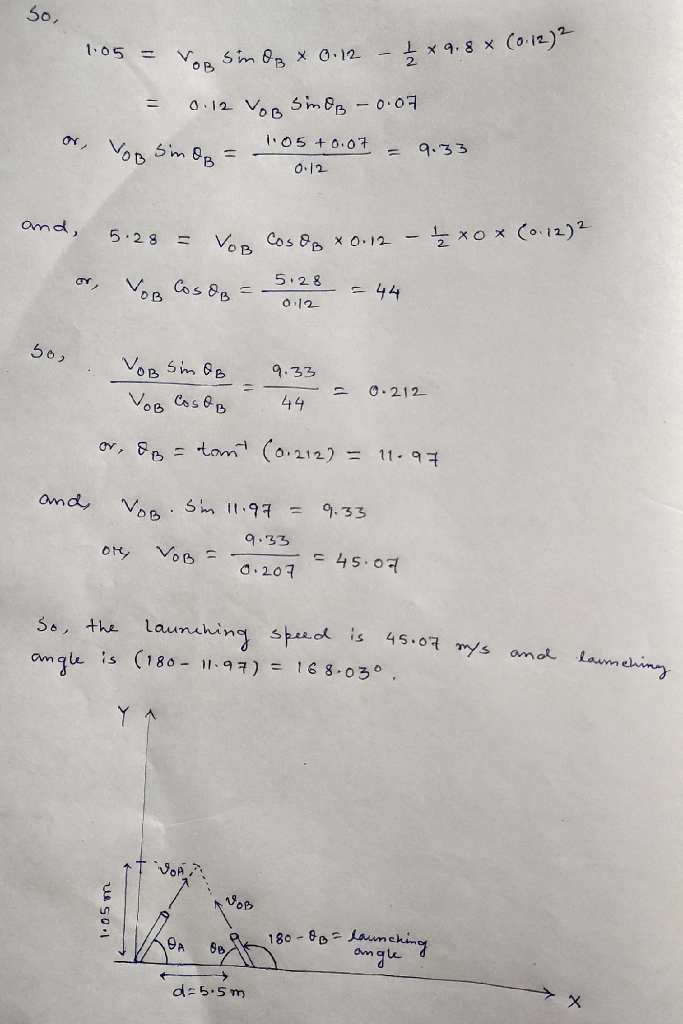 So,
1.05 = V₀B Sin θB × 0.12 − 1/2 × 9.8 × (0.12)²
= 0.12 V₀B Sin θB − 0.07
or, V₀B Sin θB = (1.05 + 0.07)/0.12 = 9.33
and, 5.28 = V₀B Cos θB × 0.12 − 1/2 × 0 × (0.12)²
or, V₀B Cos θB = 5.28/0.12 = 44
So, V₀B Sin θB / V₀B Cos θB = 9.33/44 = 0.212
or, θB = tan⁻¹ (0.212) = 11.97
and, V₀B . Sin 11.97 = 9.33
or, V₀B = 9.33/0.207 = 45.07
So, the launching speed is 45.07 m/s and launching
angle is (180 − 11.97) = 168.03°.
Y
V₀A
V₀B
1.05 m
θA
θB
180 − θB = launching
angle
d = 5.5 m
X